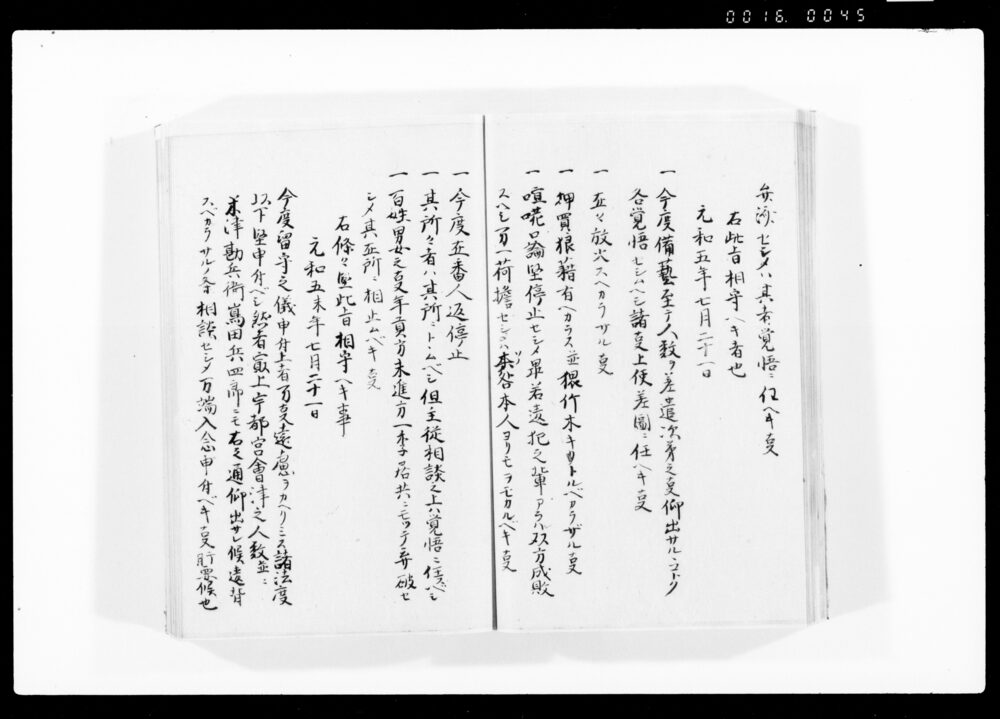 0016. 0045
弁済セシメハ其者覚悟ニ任ヘキ事
右此旨相守ヘキ者也
元和五年七月二十一日
一 今度備藝至テ人数ヲ差遣次第之事仰出サルヽコトク
各覚悟セシムヘシ諸事上使差圖ニ任ヘキ事
一 在々放火スヘカラサル事
一 押買狼藉有ヘカラス並猥竹木キリトルベカラザル事
一 喧嘩口論堅停止セシメ畢若違犯之輩アラハ双方成敗
スヘシ万一荷擔セシメハ本人ヨリモヲモカルベキ事
一 今度在番人返停止
一 其所々者ハ其所ニトヽムヘシ但主従相談之上ハ覚悟ニ任ベシ
一 百姓男女之事年貢方未進方一季居共ニモツテ弃破セ
シメ其在所ニ相止ムベキ事
右條々堅此旨相守ヘキ事
元和五未年七月二十一日
今度留守之儀申付上者万事遠慮ヲカヘリミス諸法度
以下堅申付ベシ然者最上宇都宮會津之人数並ニ
米津勘兵衛嶌田兵四郎ニモ右之通仰出サレ候違背
スベカラサルノ条相談セシメ万端入念申付ベキ事肝要候也